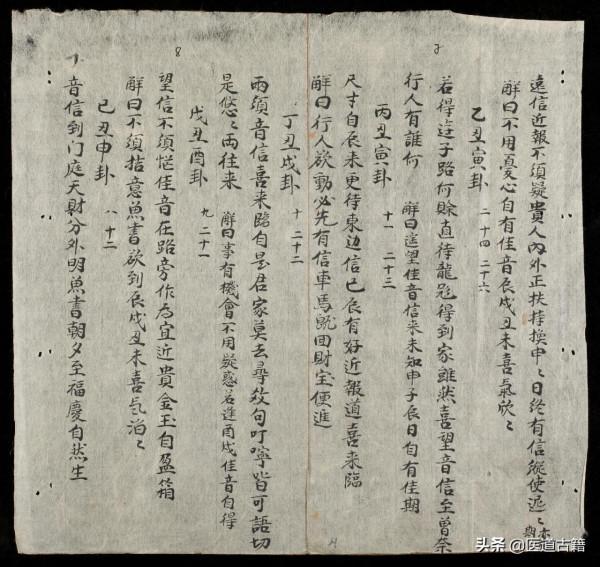 遠信近報不須疑貴人內外正扶持換申〻日終有信縱使遲〻亦期
解曰不用憂心自有佳音辰戌丑未喜氣欣〻
乙丑寅卦 二十四 二十六
若得迳子路何賒直待龍到得到家雖然喜望音信至曾奈
行人有誰何 解曰遙望佳音信來未知申子辰日自有佳期
丙丑寅卦 十一 二十三
尺寸自辰未更待東边信已辰有好近報道喜来臨
解曰行人欲動必先有信車馬既回財宝便進
丁丑戌卦 十 二十二
兩須音信喜来臨自是居家莫去尋效句叮嚀皆可語切
是悠〻兩往来 解曰事有機會不用疑惑若逢酉戌佳音自得
戊丑酉卦 九 二十一
望信不須愁佳音在路旁作為宜近貴金玉自盈箱
解曰不須掛意魚書欲到辰戌丑未喜氣洽〻
己丑申卦 八 十二
音信到门庭天財分外明魚書朝夕至福慶自然生
8
头条 @医道古籍